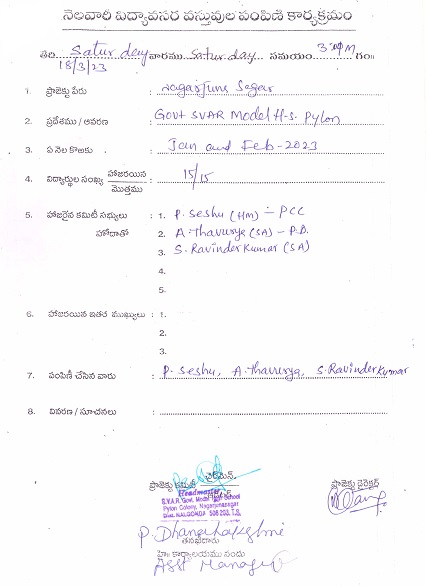 నెలవారీ విద్యావసర వస్తువుల పంపిణి కార్యక్రమం
తేది Saturday వారము Saturday సమయం 3 PM గం॥
18/3/23
1. ప్రాజెక్టు పేరు : Nagarjuna Sagar
2. ప్రదేశము / ఆవరణ : Govt SVAR Model H-S. Pylon
3. ఏ నెల కొఱకు : Jan and Feb-2023
4. విద్యార్థుల సంఖ్య హాజరయిన / మొత్తము : 15/15
5. హాజరైన కమిటీ సభ్యులు : 1. P. Seshu (HM) - PCC
హోదాతో 2. A. Thavurya (SA) - P.D.
3. S. Ravinder Kumar (SA)
4.
5.
6. హాజరయిన ఇతర ముఖ్యులు : 1.
2.
3.
7. పంపిణీ చేసిన వారు : P. Seshu, A. Thavurya, S. Ravinder Kumar
8. వివరణ / సూచనలు :
ప్రాజెక్టు కమిటీ చైర్‌మెన్ ప్రాజెక్టు డైరెక్టర్
Headmaster
S.V.A.R. Govt. Model High School
Pylon Colony, Nagarjunasagar
Dist. NALGONDA 508 203, T.S.
P. Dhanalakshmi
Asst Manager